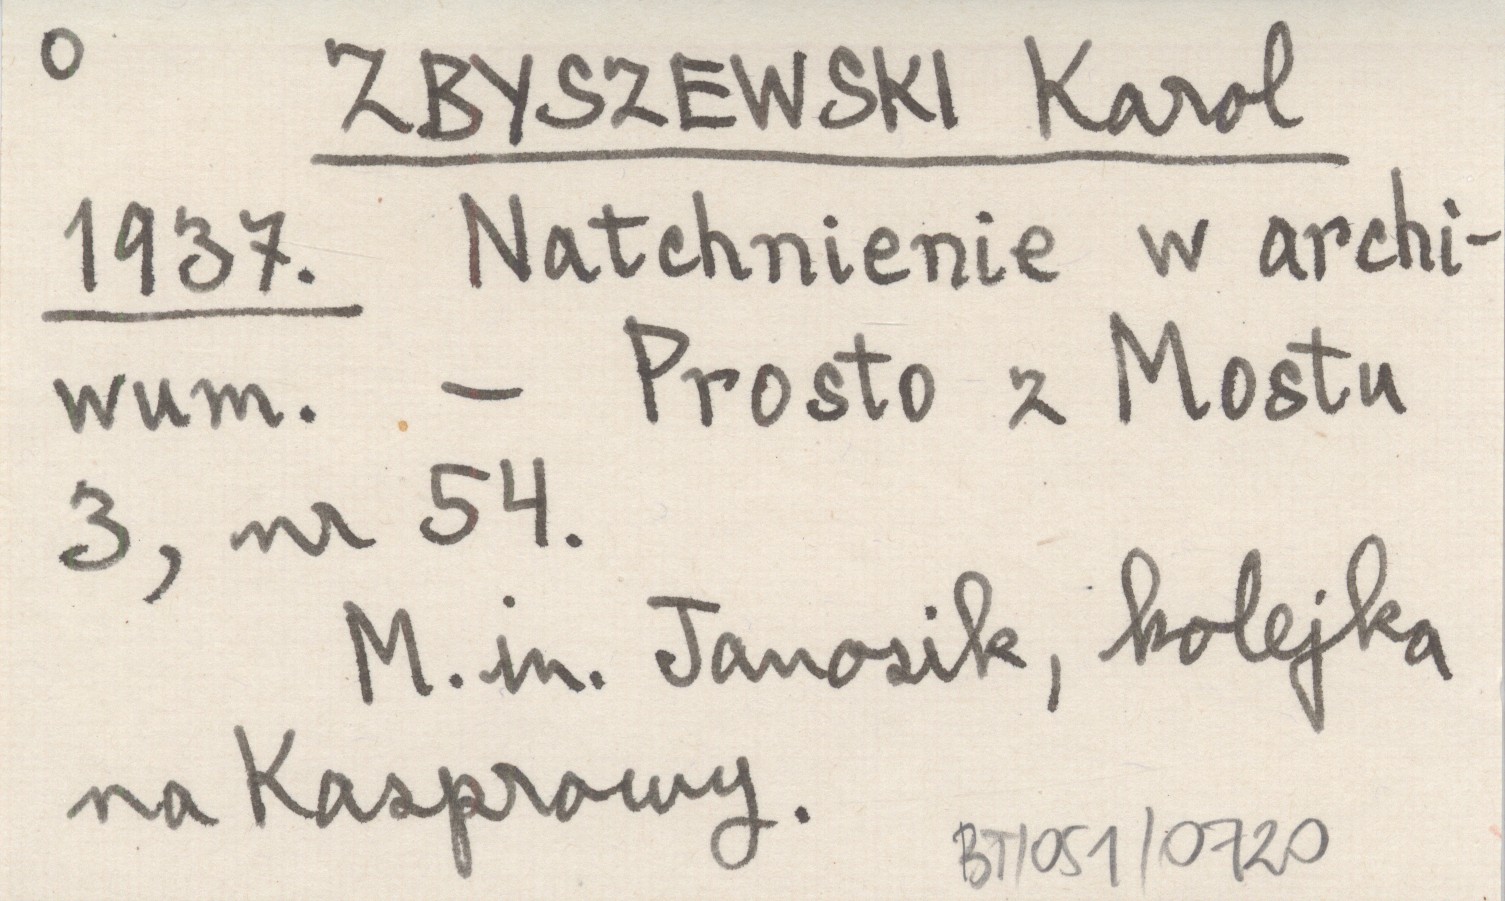 o ZBYSZEWSKI Karol
1937. Natchnienie w archi-
wum. – Prosto z Mostu
3, nr 54.
M. in. Janosik, kolejka
na Kasprowy.
BT/051/0720